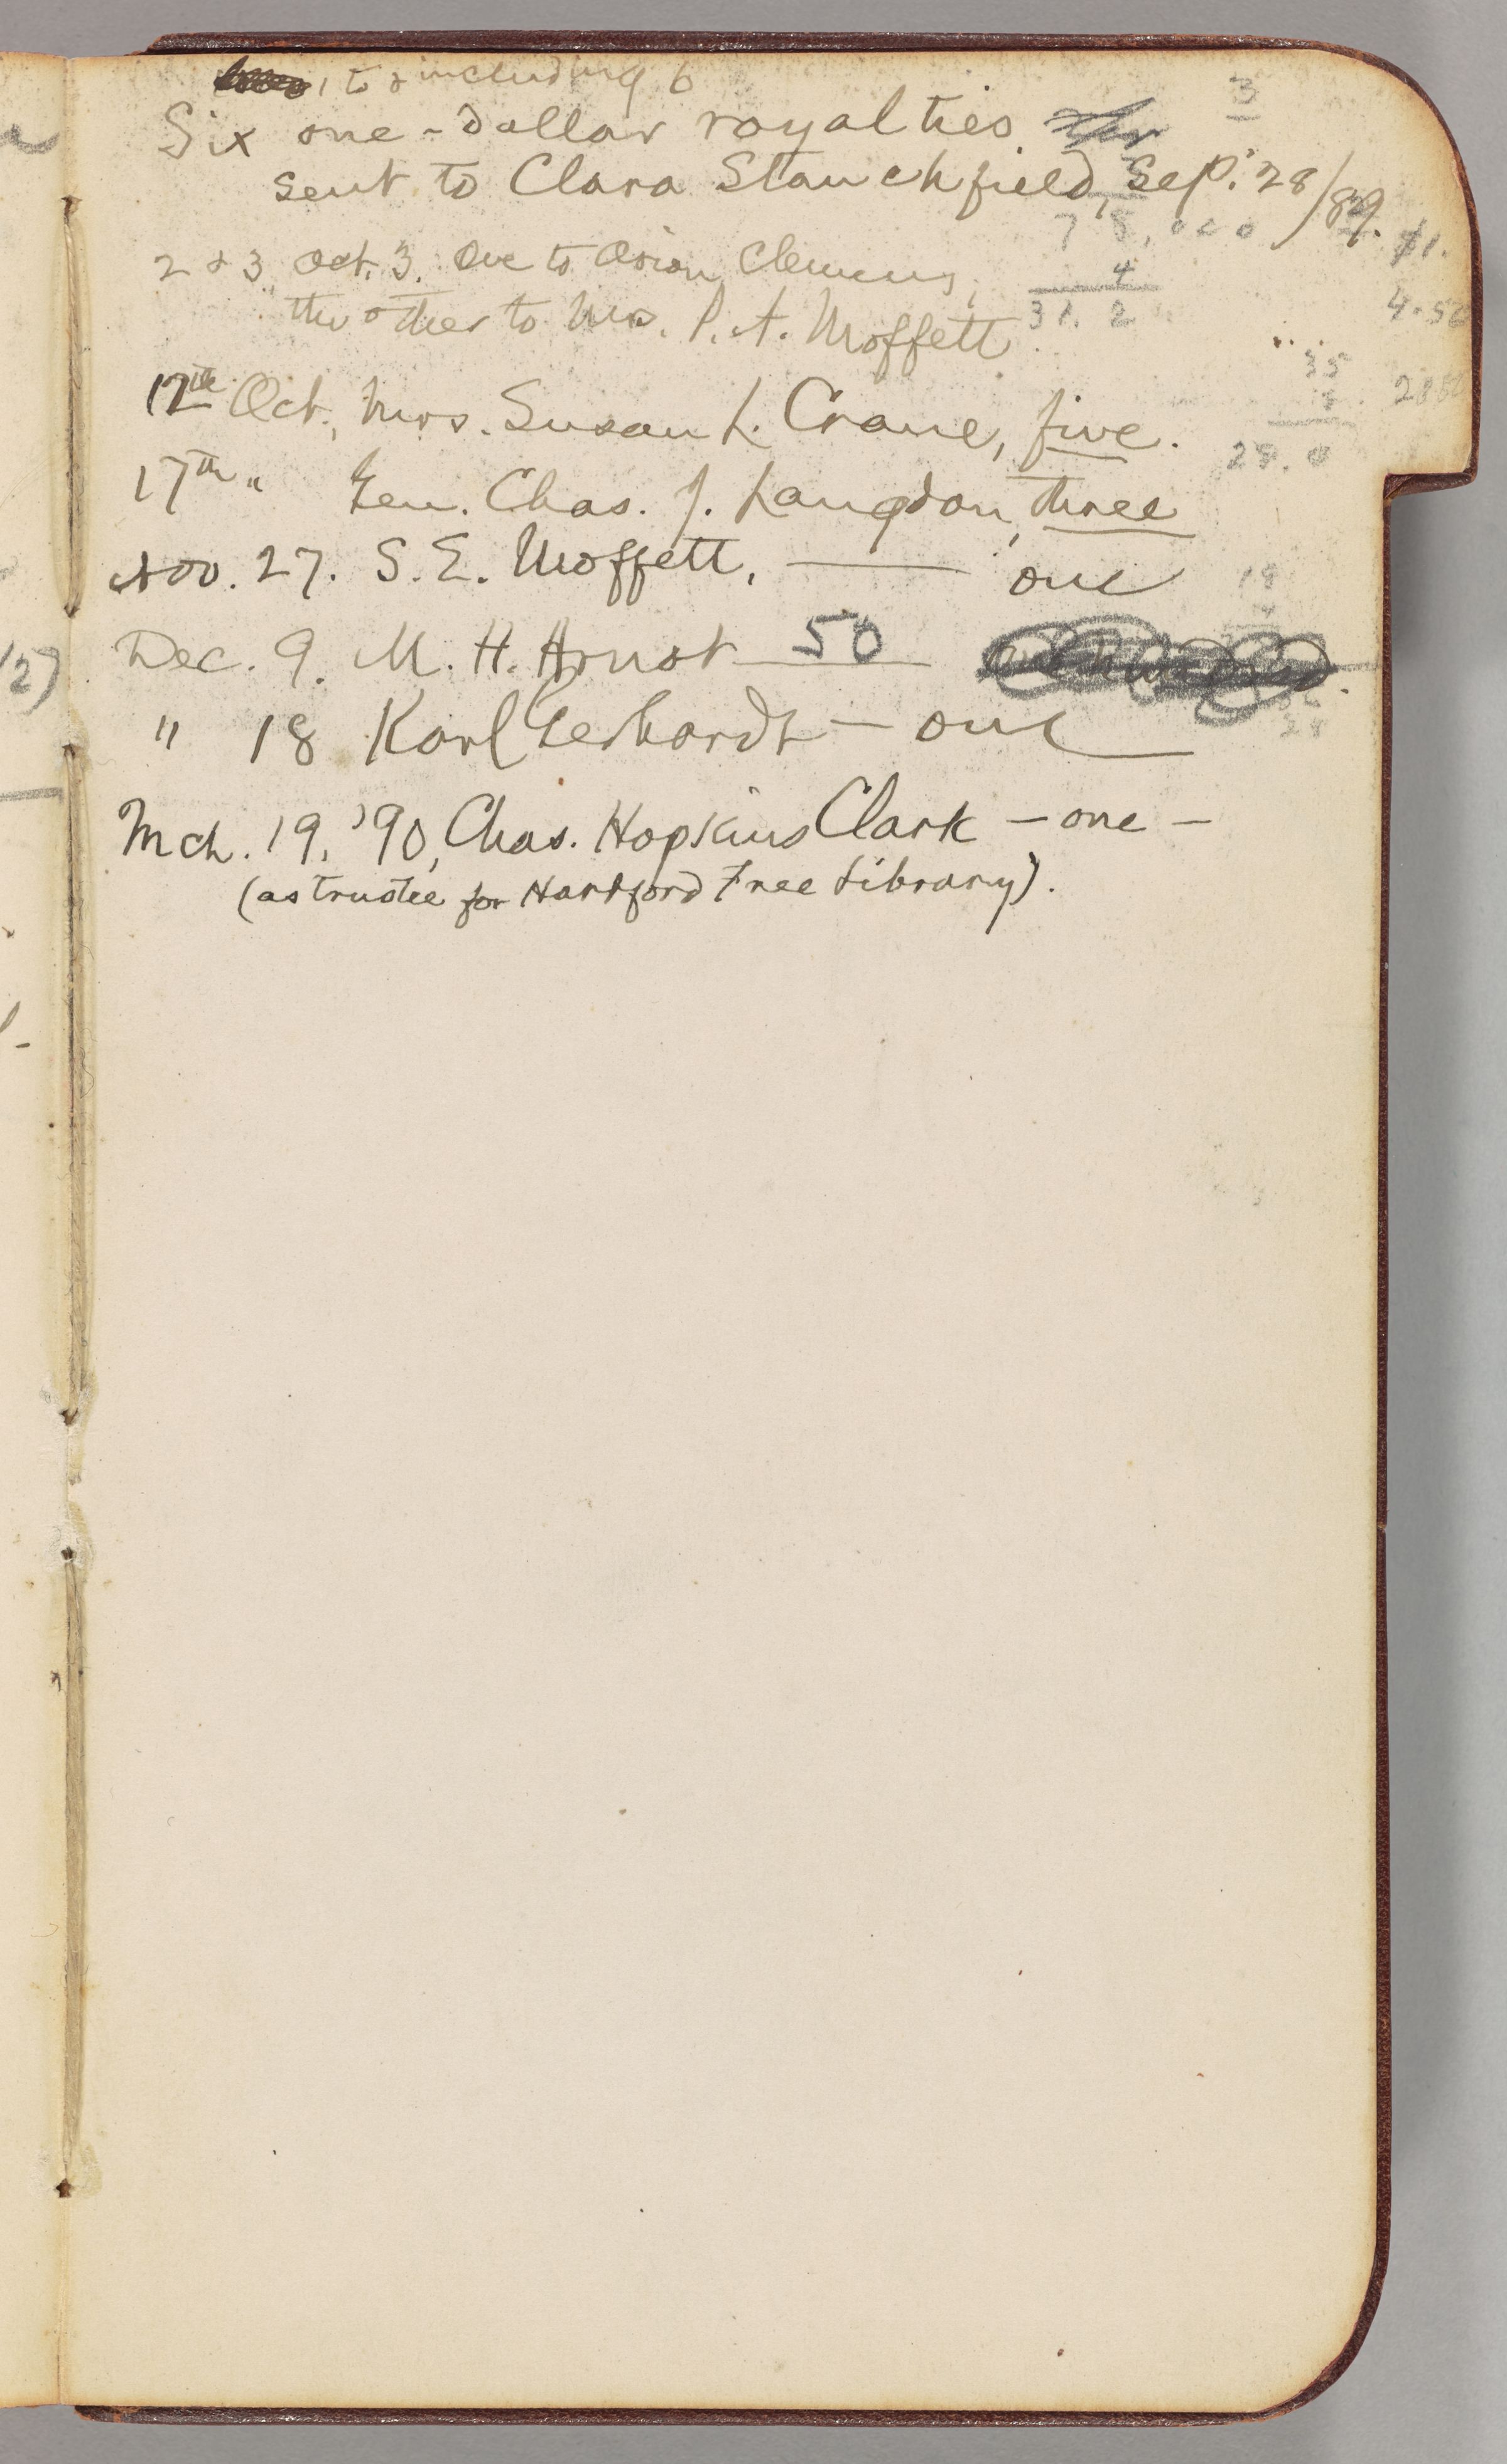 1 to & including 6
Six one-dollar royalties
3
sent to Clara Stanchfield, Sep. 28/89.
78,000
$1.
2 & 3, Oct. 3. One to Orion Clemens,
4
the other to Mrs. P. A. Moffett.
31. 2
4.50
35
12th Oct., Mrs. Susan L. Crane, five.
28.0
17th " Gen. Chas. J. Langdon, three
Nov. 27. S. E. Moffett, — one
18
Dec. 9. M. H. Arnot — 50
" 18 Karl Gerhardt — one
28
Mch. 19, '90, Chas. Hopkins Clark — one —
(as trustee for Hartford Free Library).